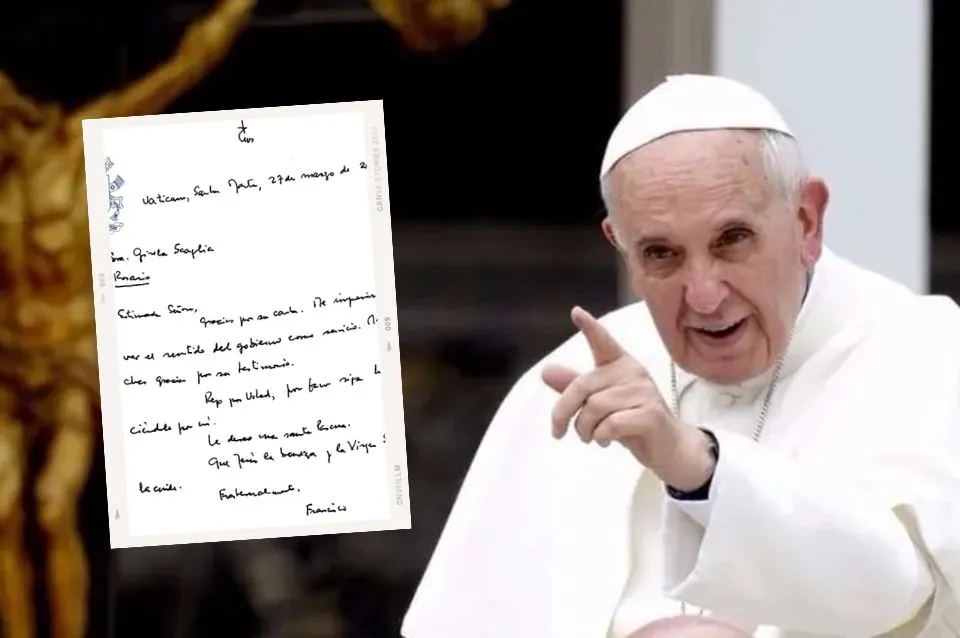 Vaticano, Santa Marta, 27 de marzo de 2
Sra. Gisela Scaglia
Rosario
Estimada Señora,
Gracias por su carta. Me impresionó
ver el sentido del gobierno como servicio. Mu
chas gracias por su testimonio.
Rezo por Usted, por favor siga ha
ciéndolo por mí.
Le deseo una santa Pascua.
Que Jesús la bendiga y la Virgen S
la cuide.
Fraternalmente,
Francisco
CANVA STORIES ZE07
600
009
ONVFILLM